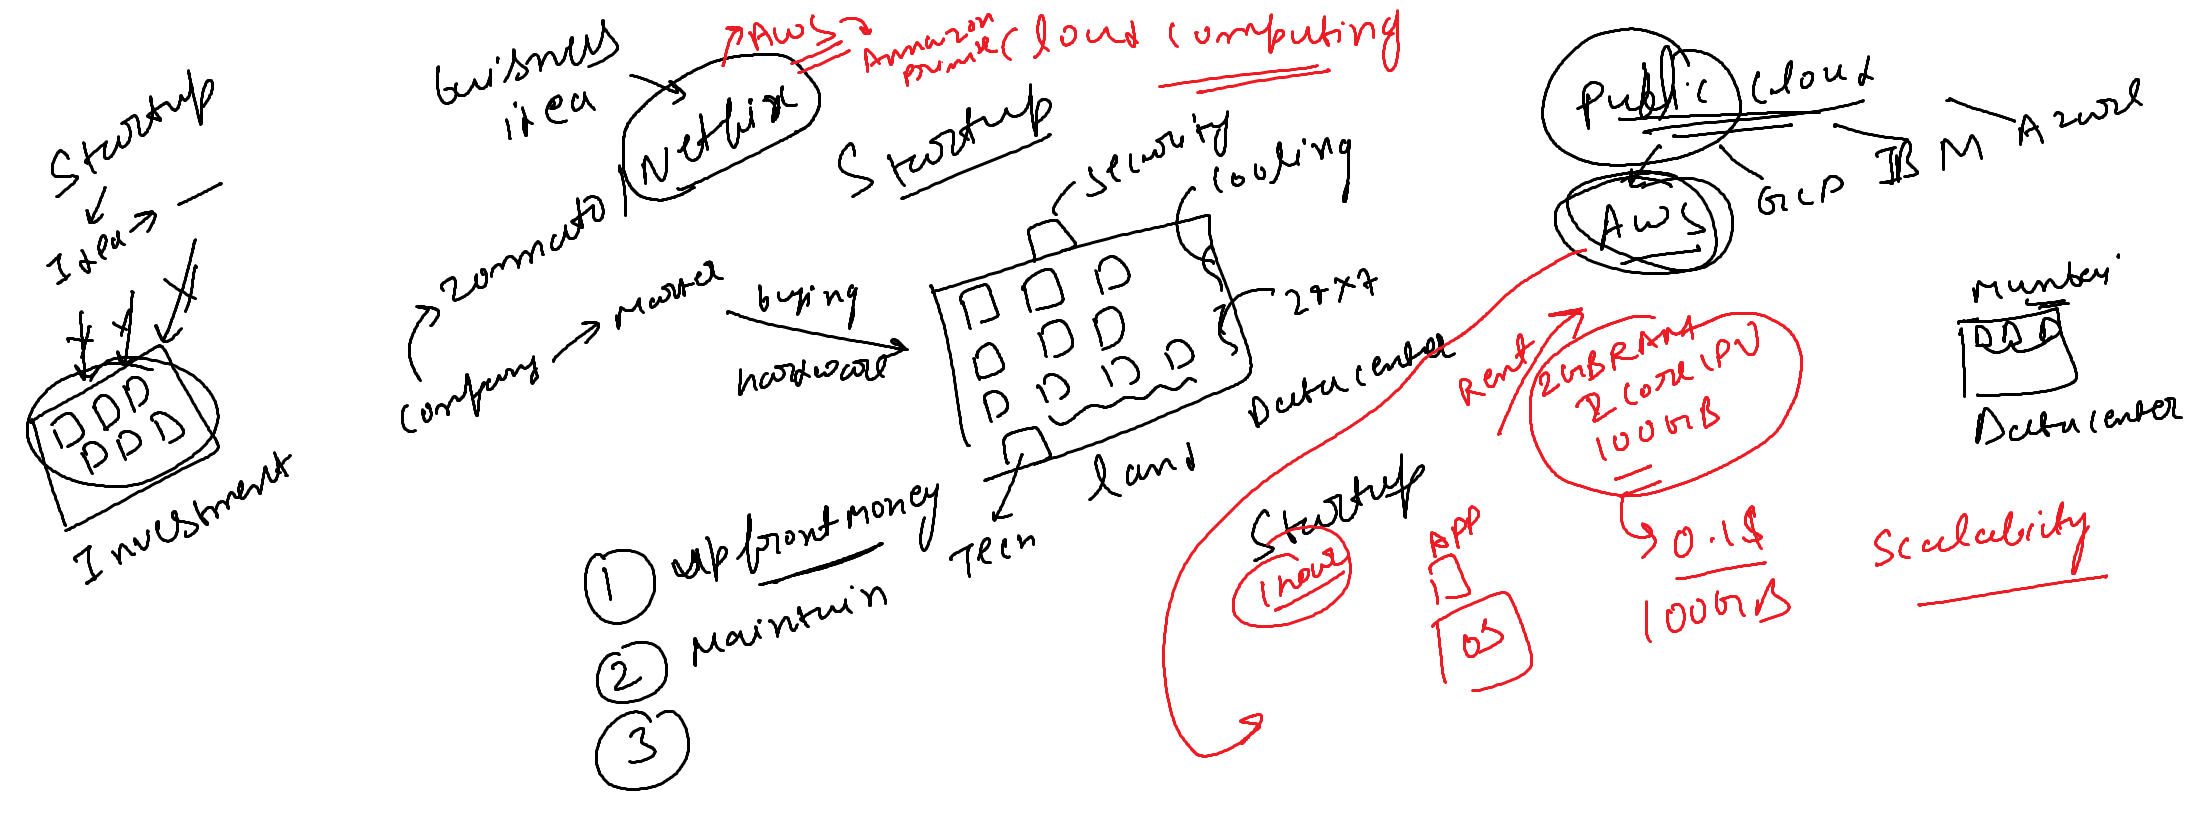 Startup
Idea
Investment
buisness
idea
Netflix
AWS
Amazon
prime
Cloud Computing
Startup
zommato
company
Market
buying
hardware
security
cooling
24x7
Data center
land
Teen
1 upfront money
2 Maintain
3
Public Cloud
AWS
GCP
IBM
Azure
Mumbai
Data center
Rent
2GB RAM
2 Core CPU
100GB
0.1$
100GB
Startup
1 hour
APP
OS
Scalability